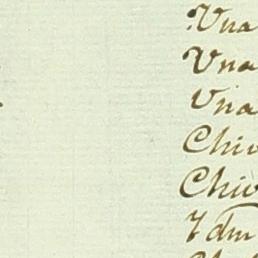 Vna
Vna
Vna
Chiv
Chiv
Ydm